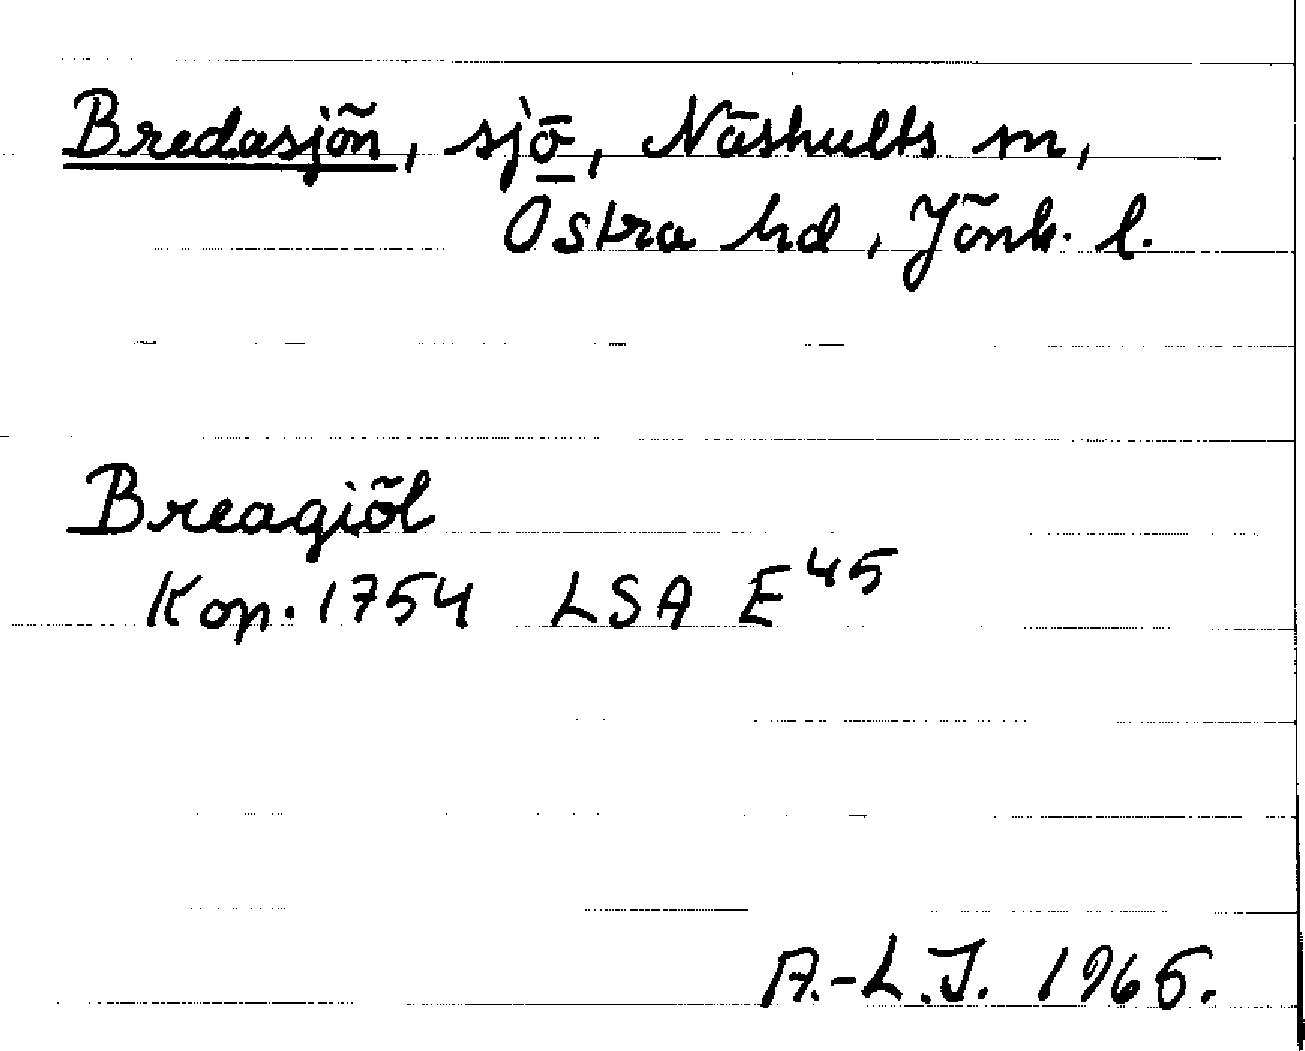 Bredasjön, sjö, Näshults sn,
Östra hd, Jönk. l.
Breagiöl
Kop. 1754 LSA E45
A.-L.J. 1965.